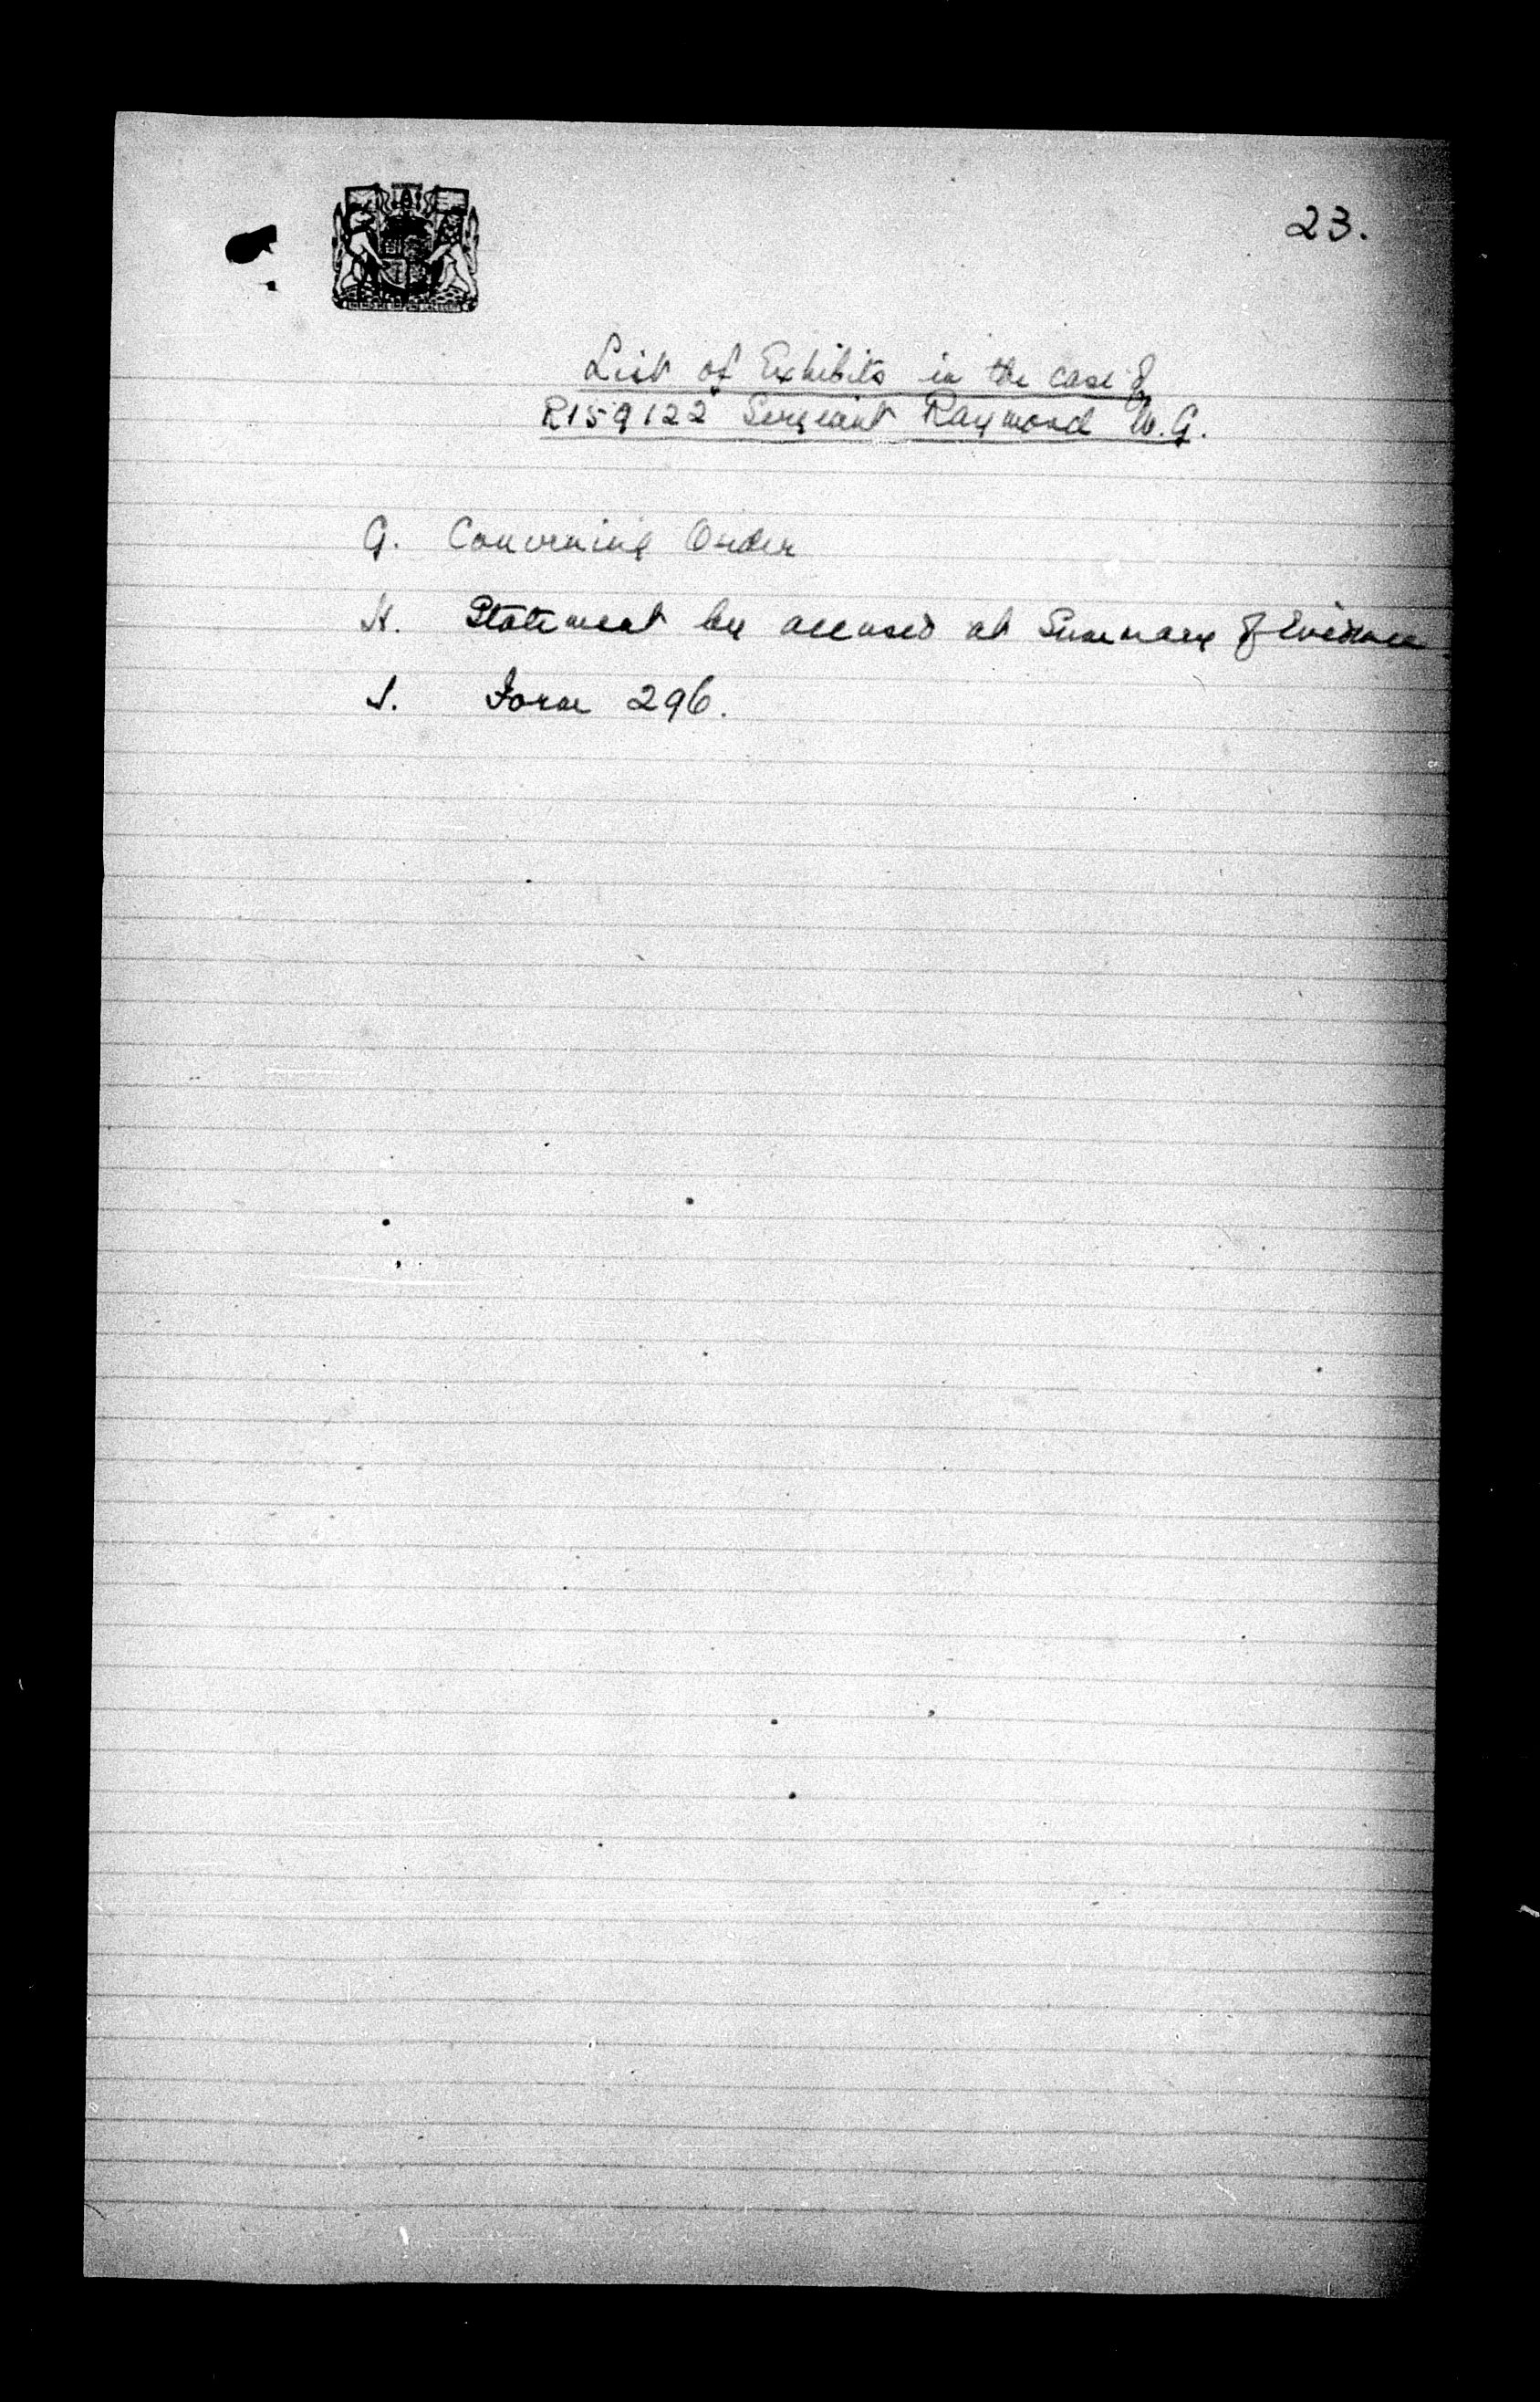 23.
List of Exhibits in the case of
R159122 Sergeant Raymond W.G.
G. Convening Order
H. Statement by accused at Summary of Evidence
J. Form 296.